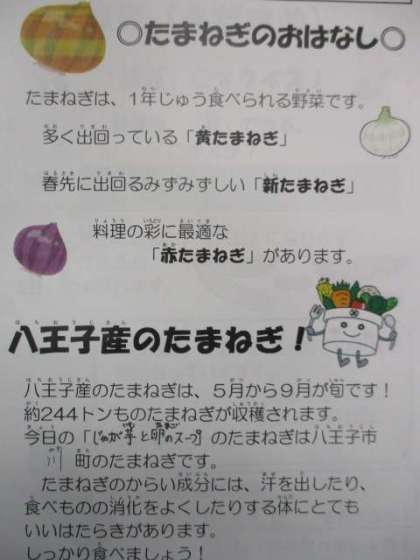 ○たまねぎのおはなし○
たまねぎは、1年じゅう食べられる野菜です。
多く出回っている「黄たまねぎ」
春先に出回るみずみずしい「新たまねぎ」
料理の彩に最適な
「赤たまねぎ」があります。
八王子産のたまねぎ！
八王子産のたまねぎは、5月から9月が旬です！
約244トンものたまねぎが収穫されます。
今日の「じゃが芋と卵のスープ」のたまねぎは八王子市
川 町のたまねぎです。
たまねぎのからい成分には、汗を出したり、
食べものの消化をよくしたりする体にとても
いいはたらきがあります。
しっかり食べましょう！